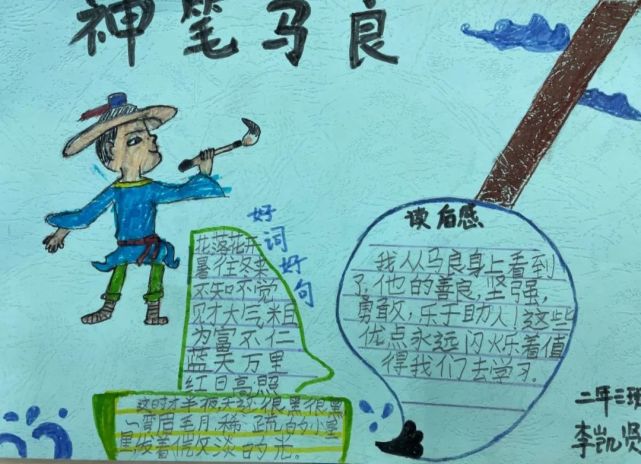 神笔马良
好词好句
花落花开
暑往冬来
不知不觉
财大气粗
为富不仁
蓝天万里
红日高照
这时才半夜,天还很黑很黑
一弯眉毛月,稀疏的小星
里发着微淡的光。
读后感
我从马良身上看到
了他的善良,坚强,
勇敢,乐于助人!这些
优点永远闪烁着值
得我们去学习.
二年三班
李凯贤